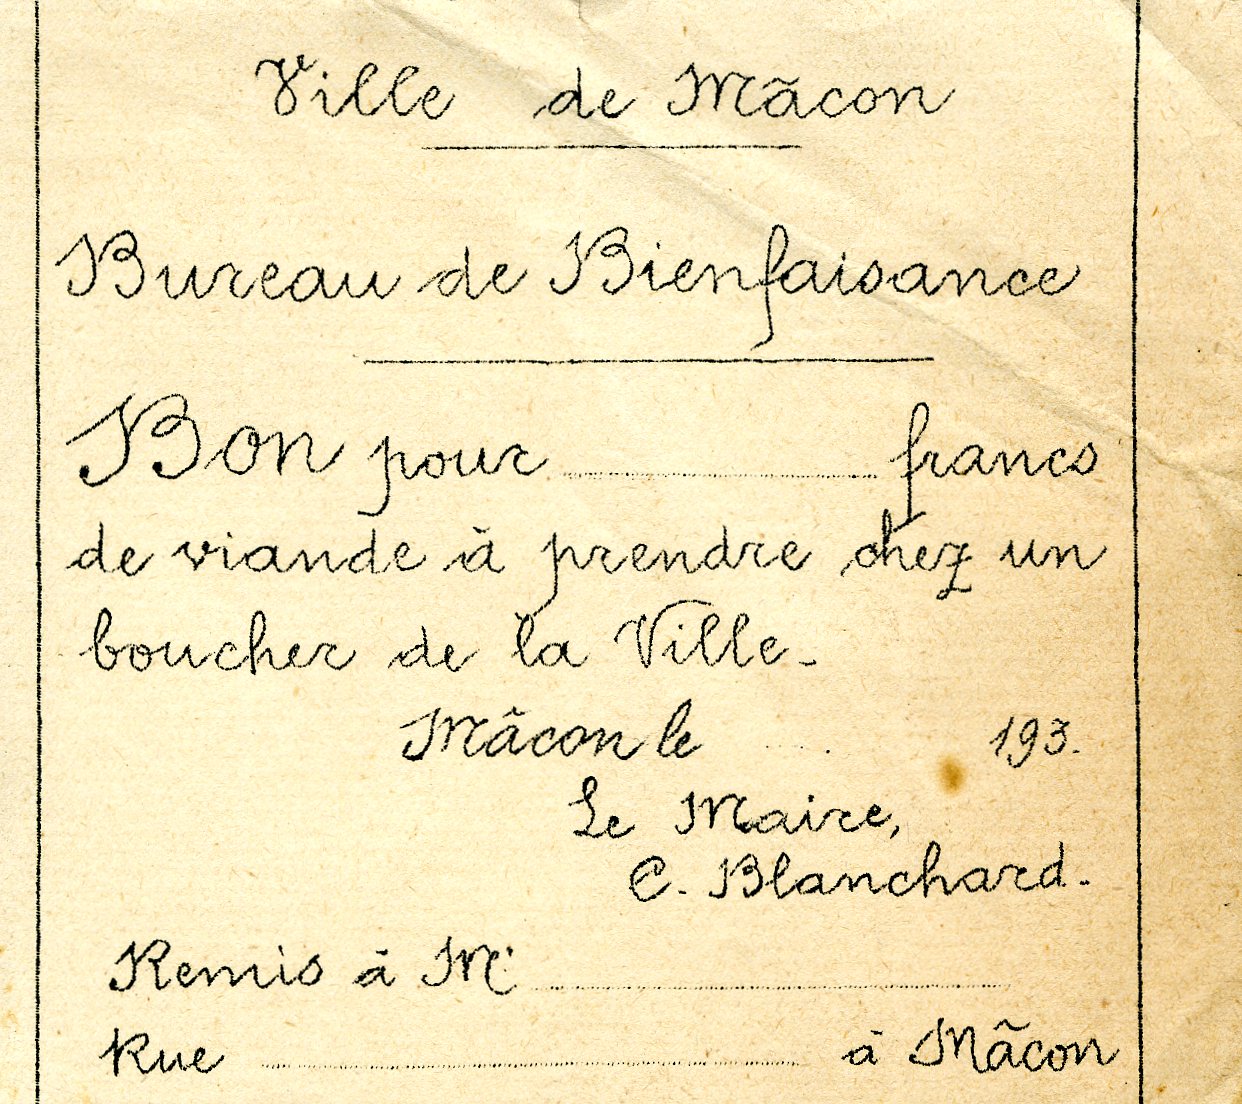 Ville de Mâcon
Bureau de Bienfaisance
Bon pour ........................ francs
de viande à prendre chez un
boucher de la Ville.
Mâcon le 193.
Le Maire,
C. Blanchard.
Remis à M. ........................
Rue ........................ à Mâcon